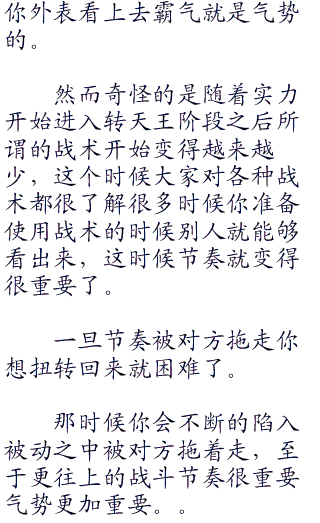 你外表看上去霸气就是气势
的。
然而奇怪的是随着实力
开始进入转天王阶段之后所
谓的战术开始变得越来越
少，这个时候大家对各种战
术都很了解很多时候你准备
使用战术的时候别人就能够
看出来，这时候节奏就变得
很重要了。
一旦节奏被对方拖走你
想扭转回来就困难了。
那时候你会不断的陷入
被动之中被对方拖着走，至
于更往上的战斗节奏很重要
气势更加重要。。